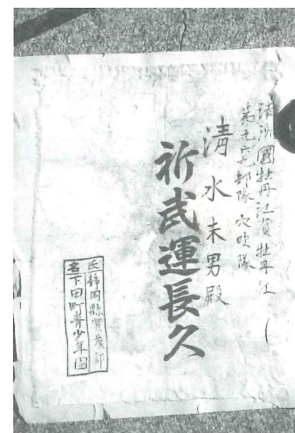 満洲國牡丹江省牡丹江
第九六七部隊 穴吹隊
清水末男殿
祈武運長久
静岡縣賀茂郡
下田町青少年團